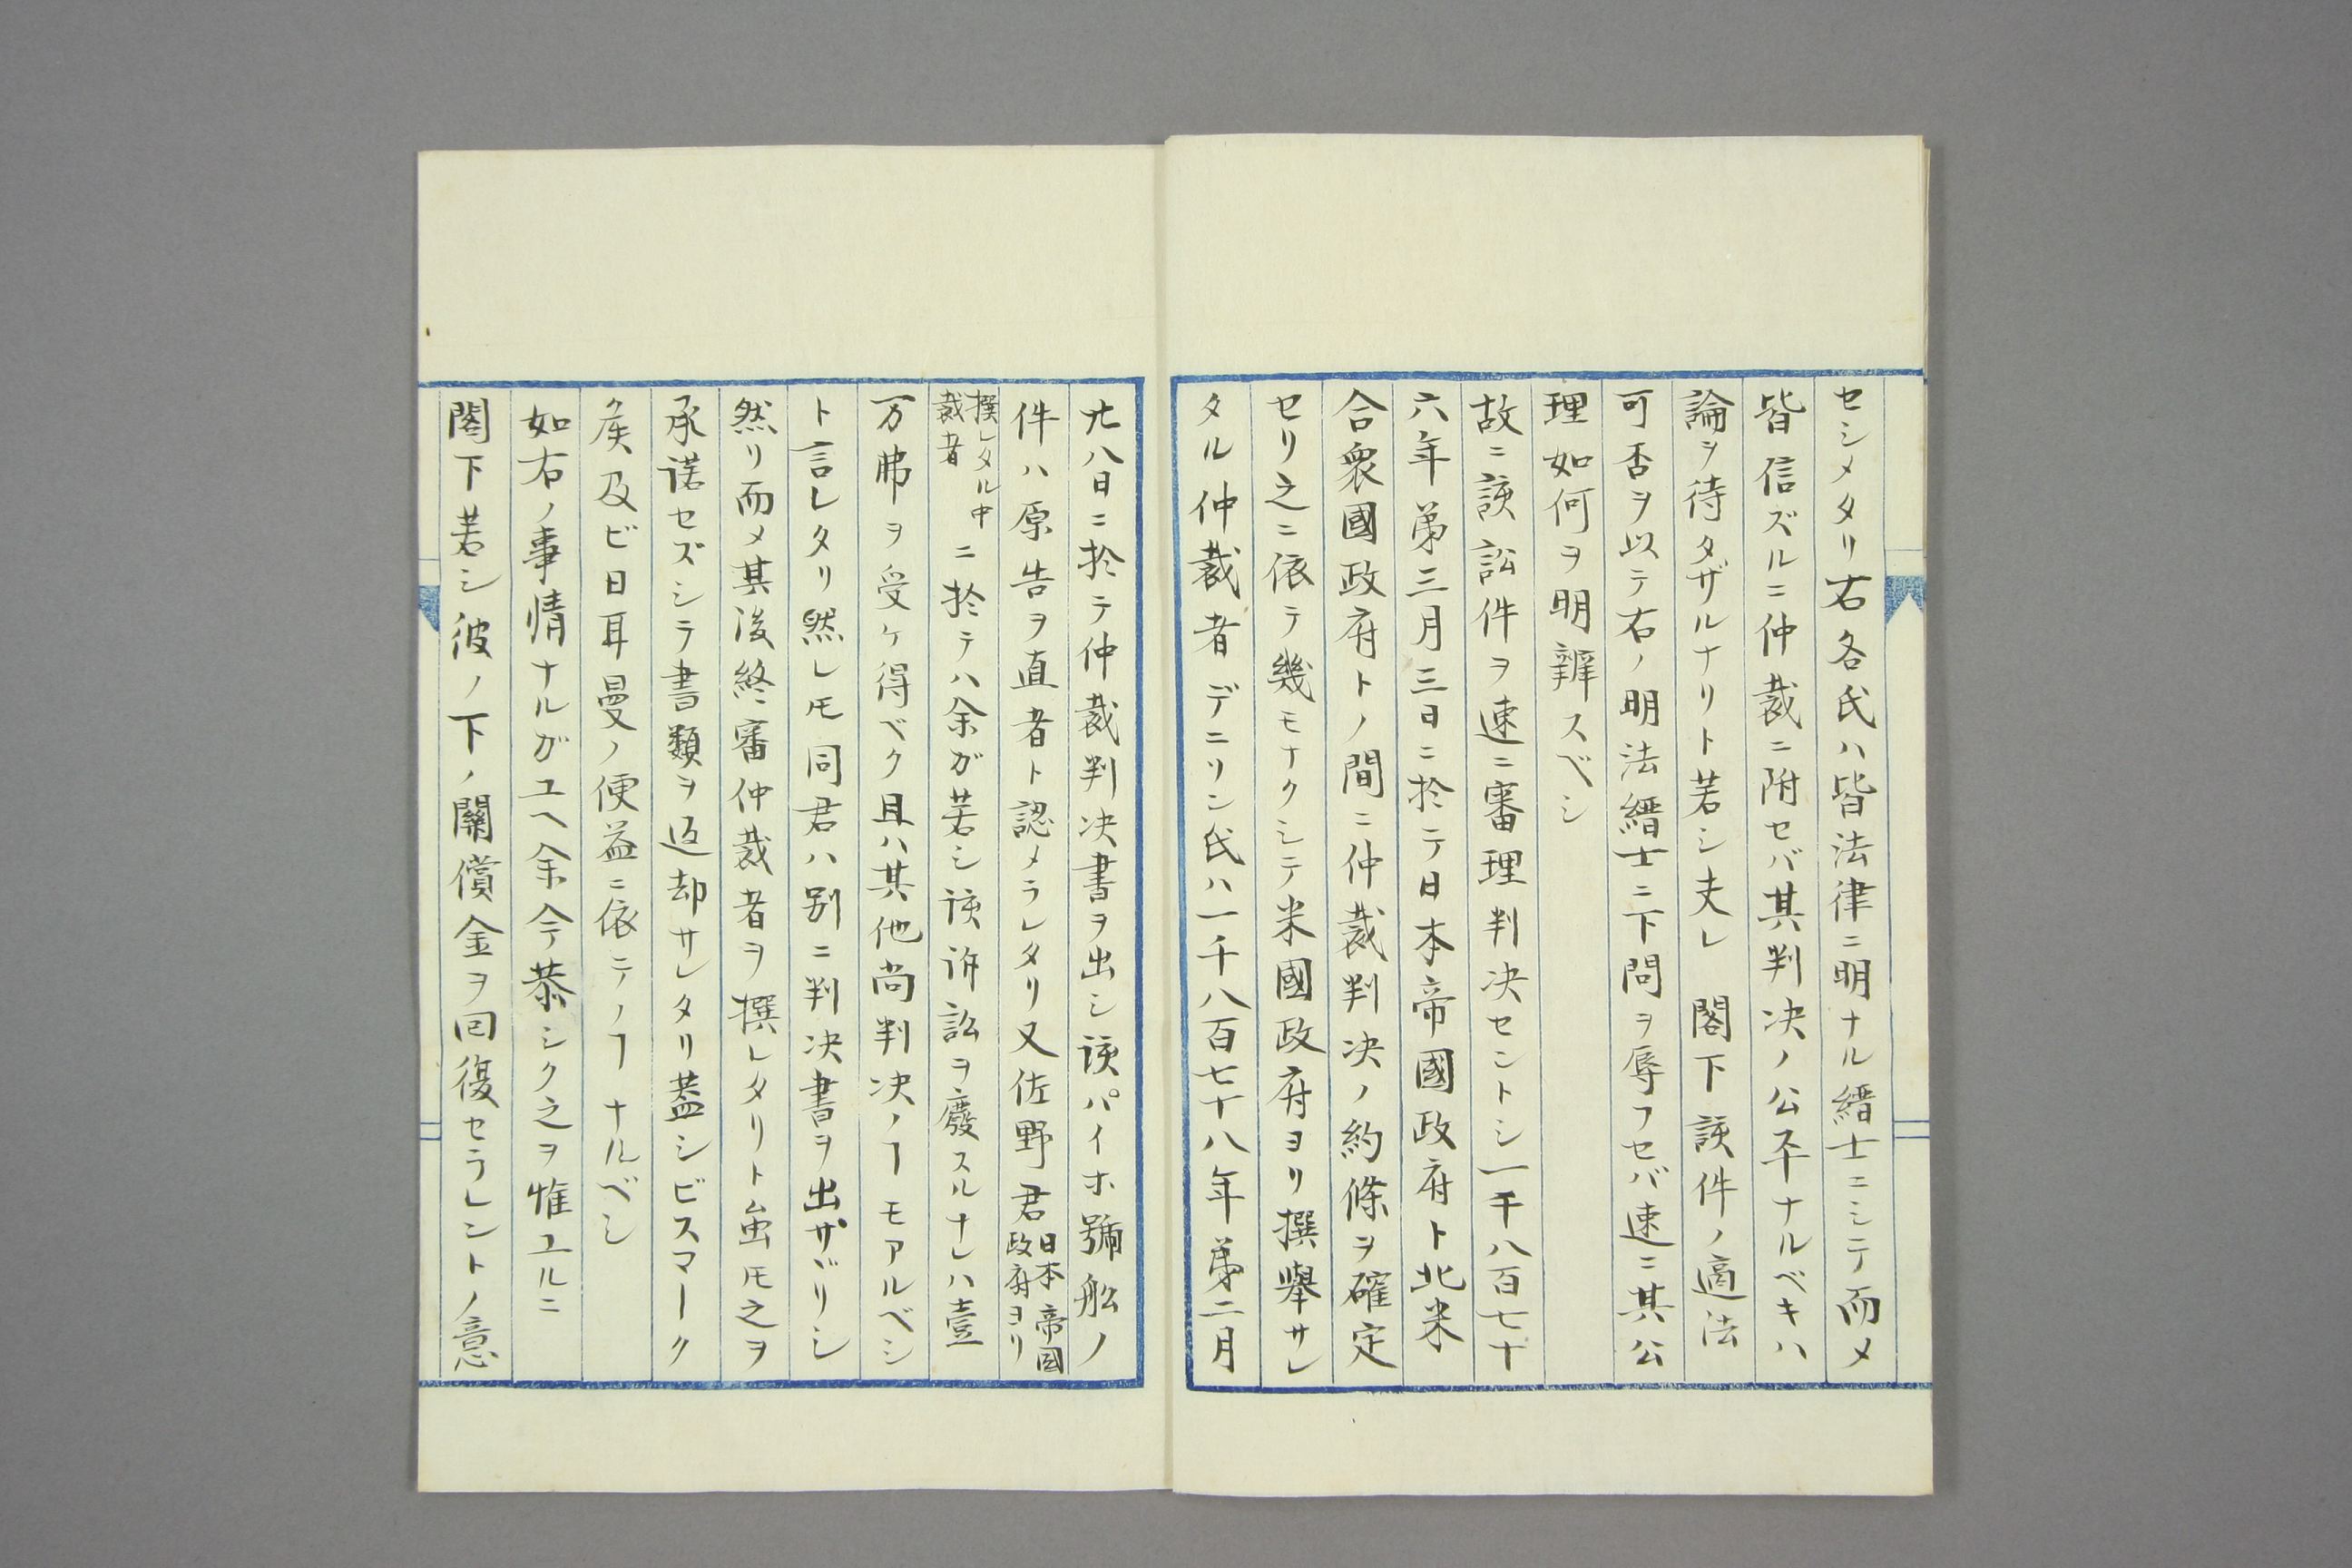 セシメタリ右各氏ハ皆法律ニ明ナル縉士ニシテ而メ
皆信ズルニ仲裁ニ附セバ其判决ノ公平ナルベキハ
論ヲ待タザルナリト若シ夫レ 閣下該件ノ適法
可否ヲ以テ右ノ明法縉士ニ下問ヲ辱フセバ速ニ其公
理如何ヲ明辨スベシ
故ニ該訟件ヲ速ニ審理判决セントシ一千八百七十
六年第三月三日ニ於テ日本帝國政府ト北米
合衆國政府トノ間ニ仲裁判决ノ約條ヲ確定
セリ之ニ依テ幾モナクシテ米國政府ヨリ撰擧サレ
タル仲裁者デニリン氏ハ一千八百七十八年第二月
廿八日ニ於テ仲裁判决書ヲ出シ該パイホ號舩ノ
件ハ原告ヲ直者ト認メラレタリ又佐野君日本帝國政府ヨリ
撰レタル中裁者ニ於テハ余ガ若シ該訴訟ヲ廢スルナレハ壹
万弗ヲ受ケ得ベク且ハ其他尚判决ノヿモアルベシ
ト言レタリ然レ𪜈同君ハ别ニ判决書ヲ出サヾリシ
然リ而メ其後終審仲裁者ヲ撰レタリト虽𪜈之ヲ
承諾セズシテ書類ヲ返却サレタリ蓋シビスマーク
侯及ビ日耳曼ノ便益ニ依テノヿナルベシ
如右ノ事情ナルガユヘ余今恭シク之ヲ惟ユルニ
閣下若シ彼ノ下ノ關償金ヲ回復セラレントノ意